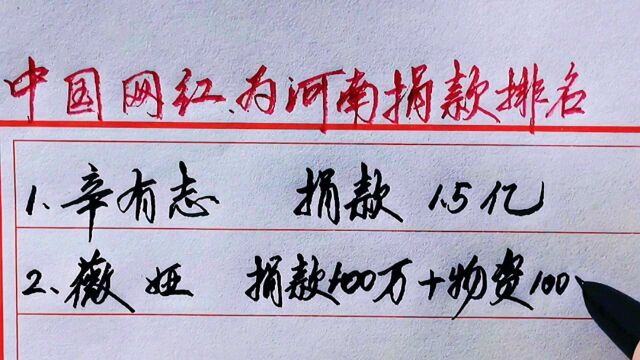 中国网红、为河南捐款排名
1、辛有志 捐款 1.5亿
2、薇娅 捐款400万+物资100